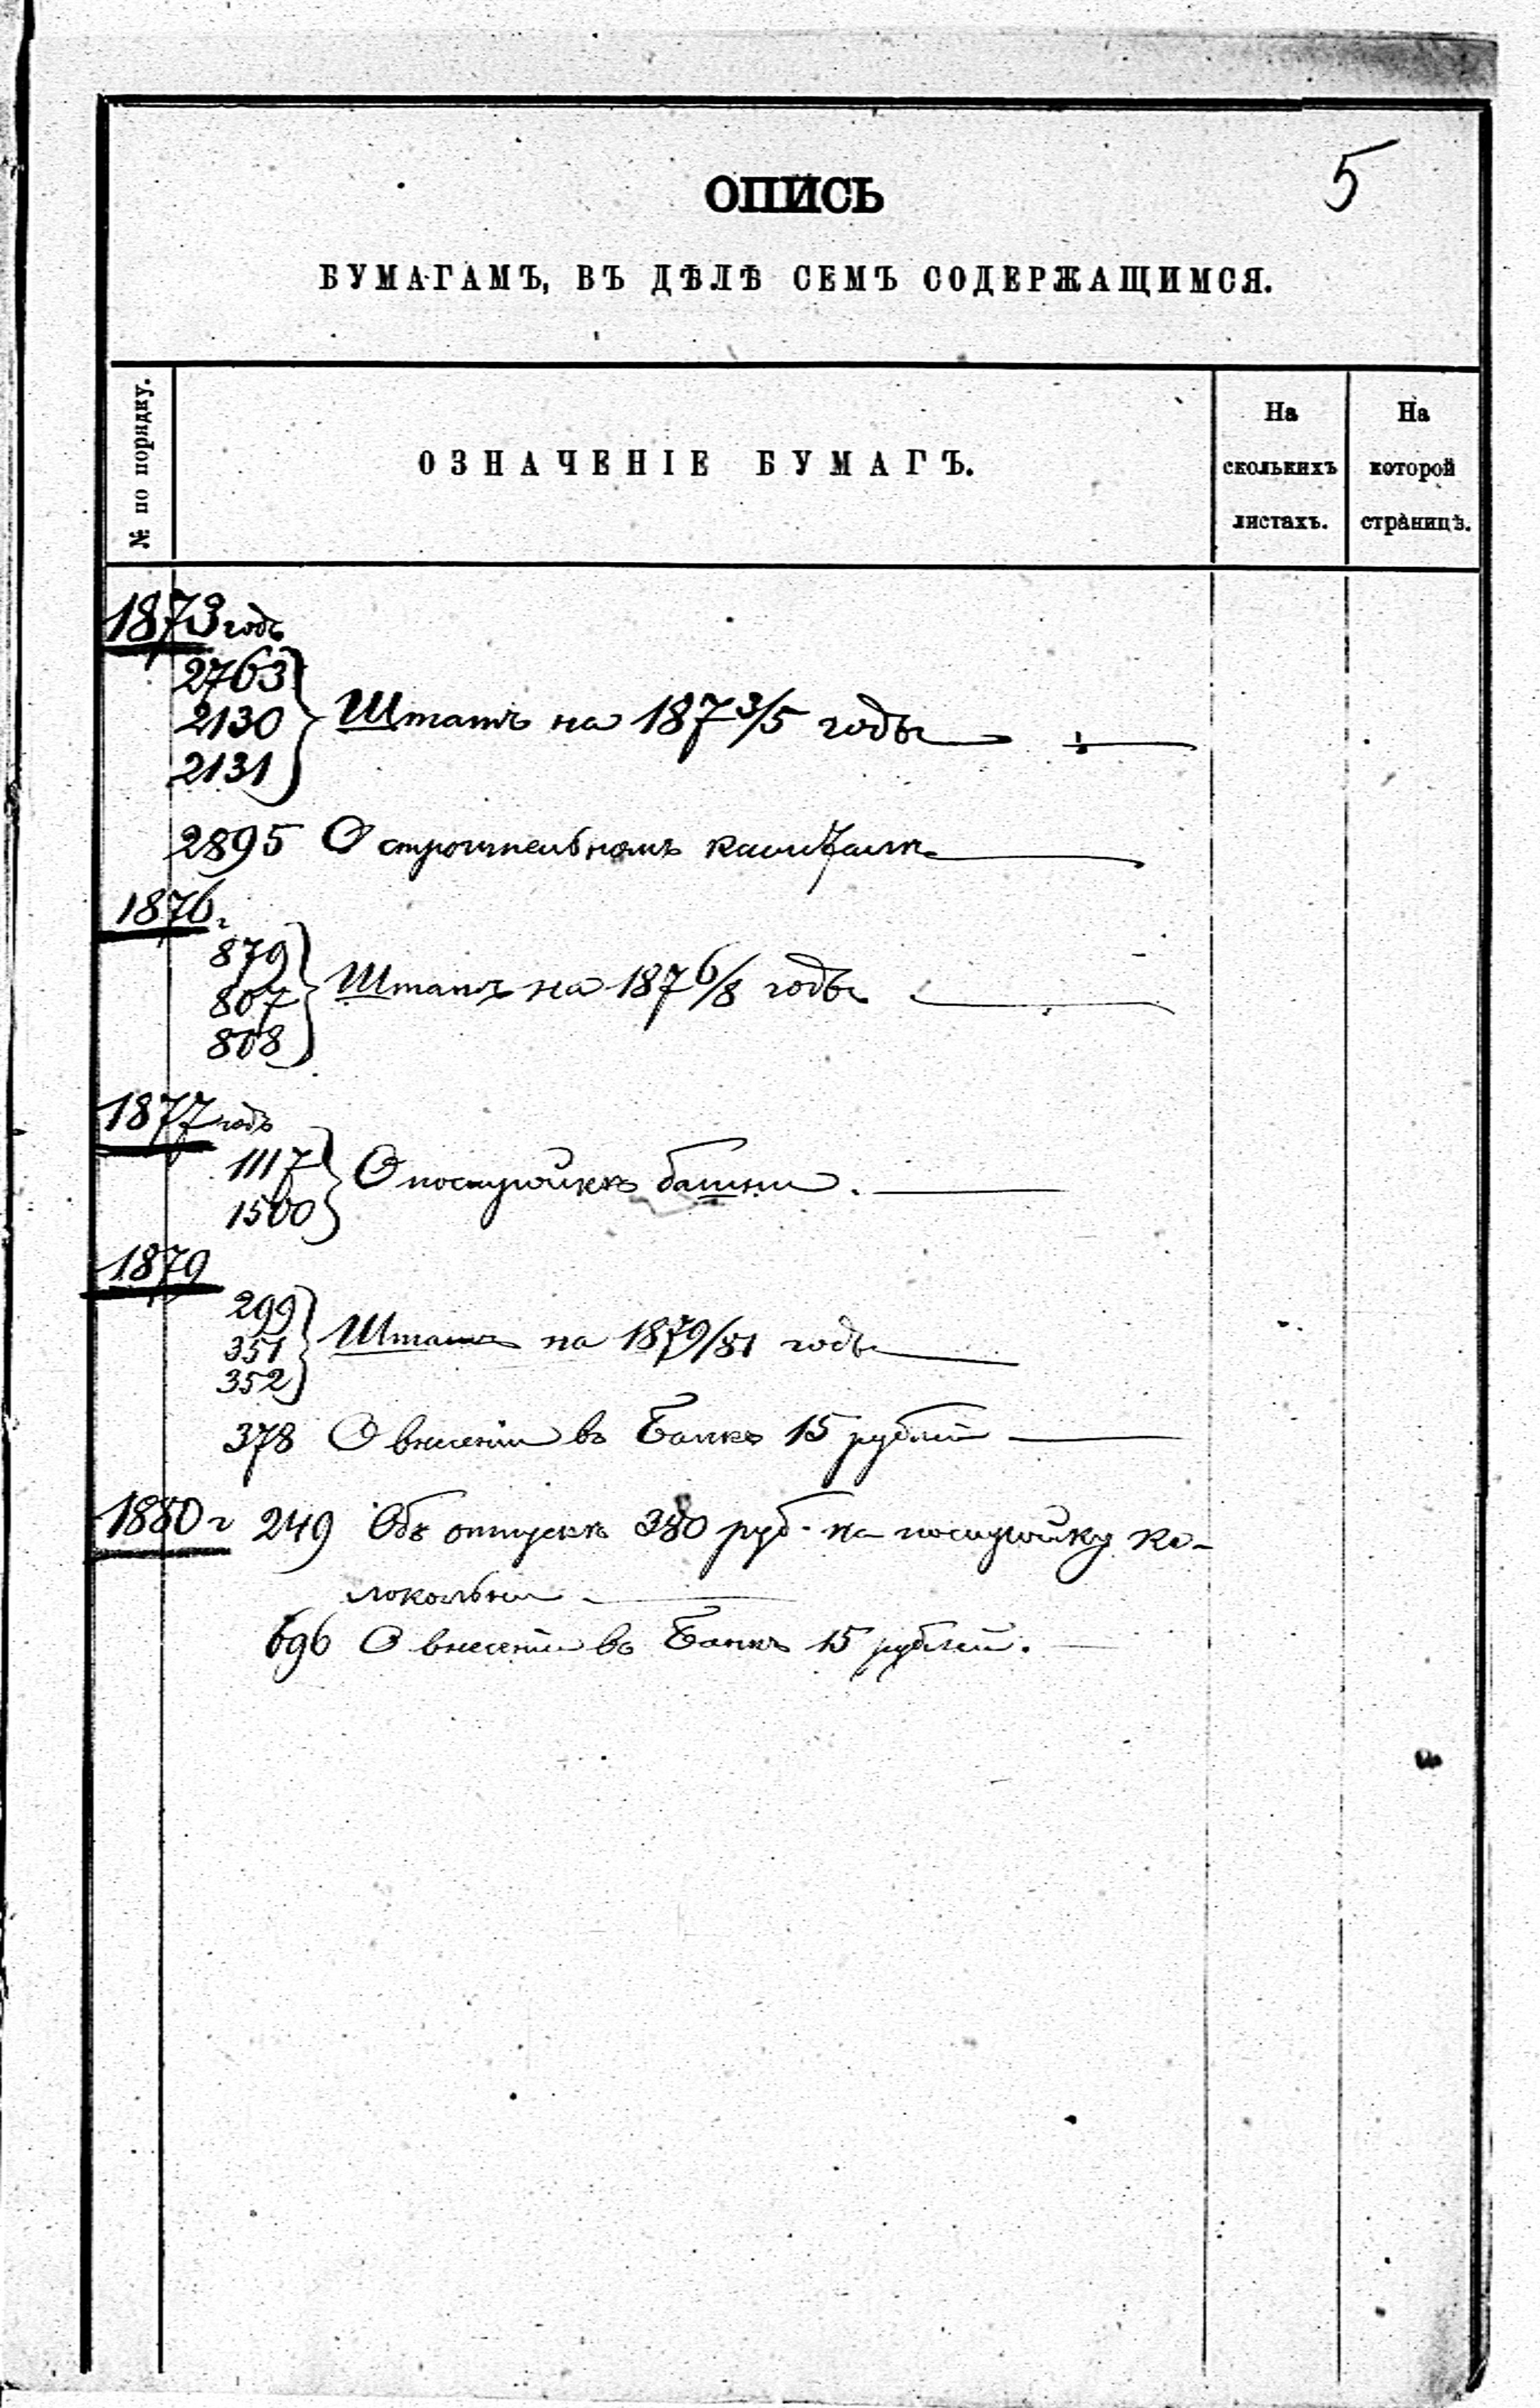 5
ОПИСЬ
БУМАГАМЪ, ВЪ ДѢЛѢ СЕМЪ СОДЕРЖАЩИМСЯ.
№ по порядку.
ОЗНАЧЕНІЕ БУМАГЪ.
На
сколькихъ
листахъ.
На
которой
страницѣ.
1873 годъ
2763
2130 Штатъ на 187 3/5 годы
2131
2895 О строительномъ капиталѣ
1876 г
879
807 Штатъ на 187 6/8 годы
808
1877 годъ
1117 О постройкѣ башни.
1500
1879
299
351 Штатъ на 1879/81 годы
352
378 О внесеніи въ Банкъ 15 рублей
1880 г 249 Объ отпускѣ 380 руб. на постройку ко-
локольни
696 О внесеніи въ Банкъ 15 рублей.